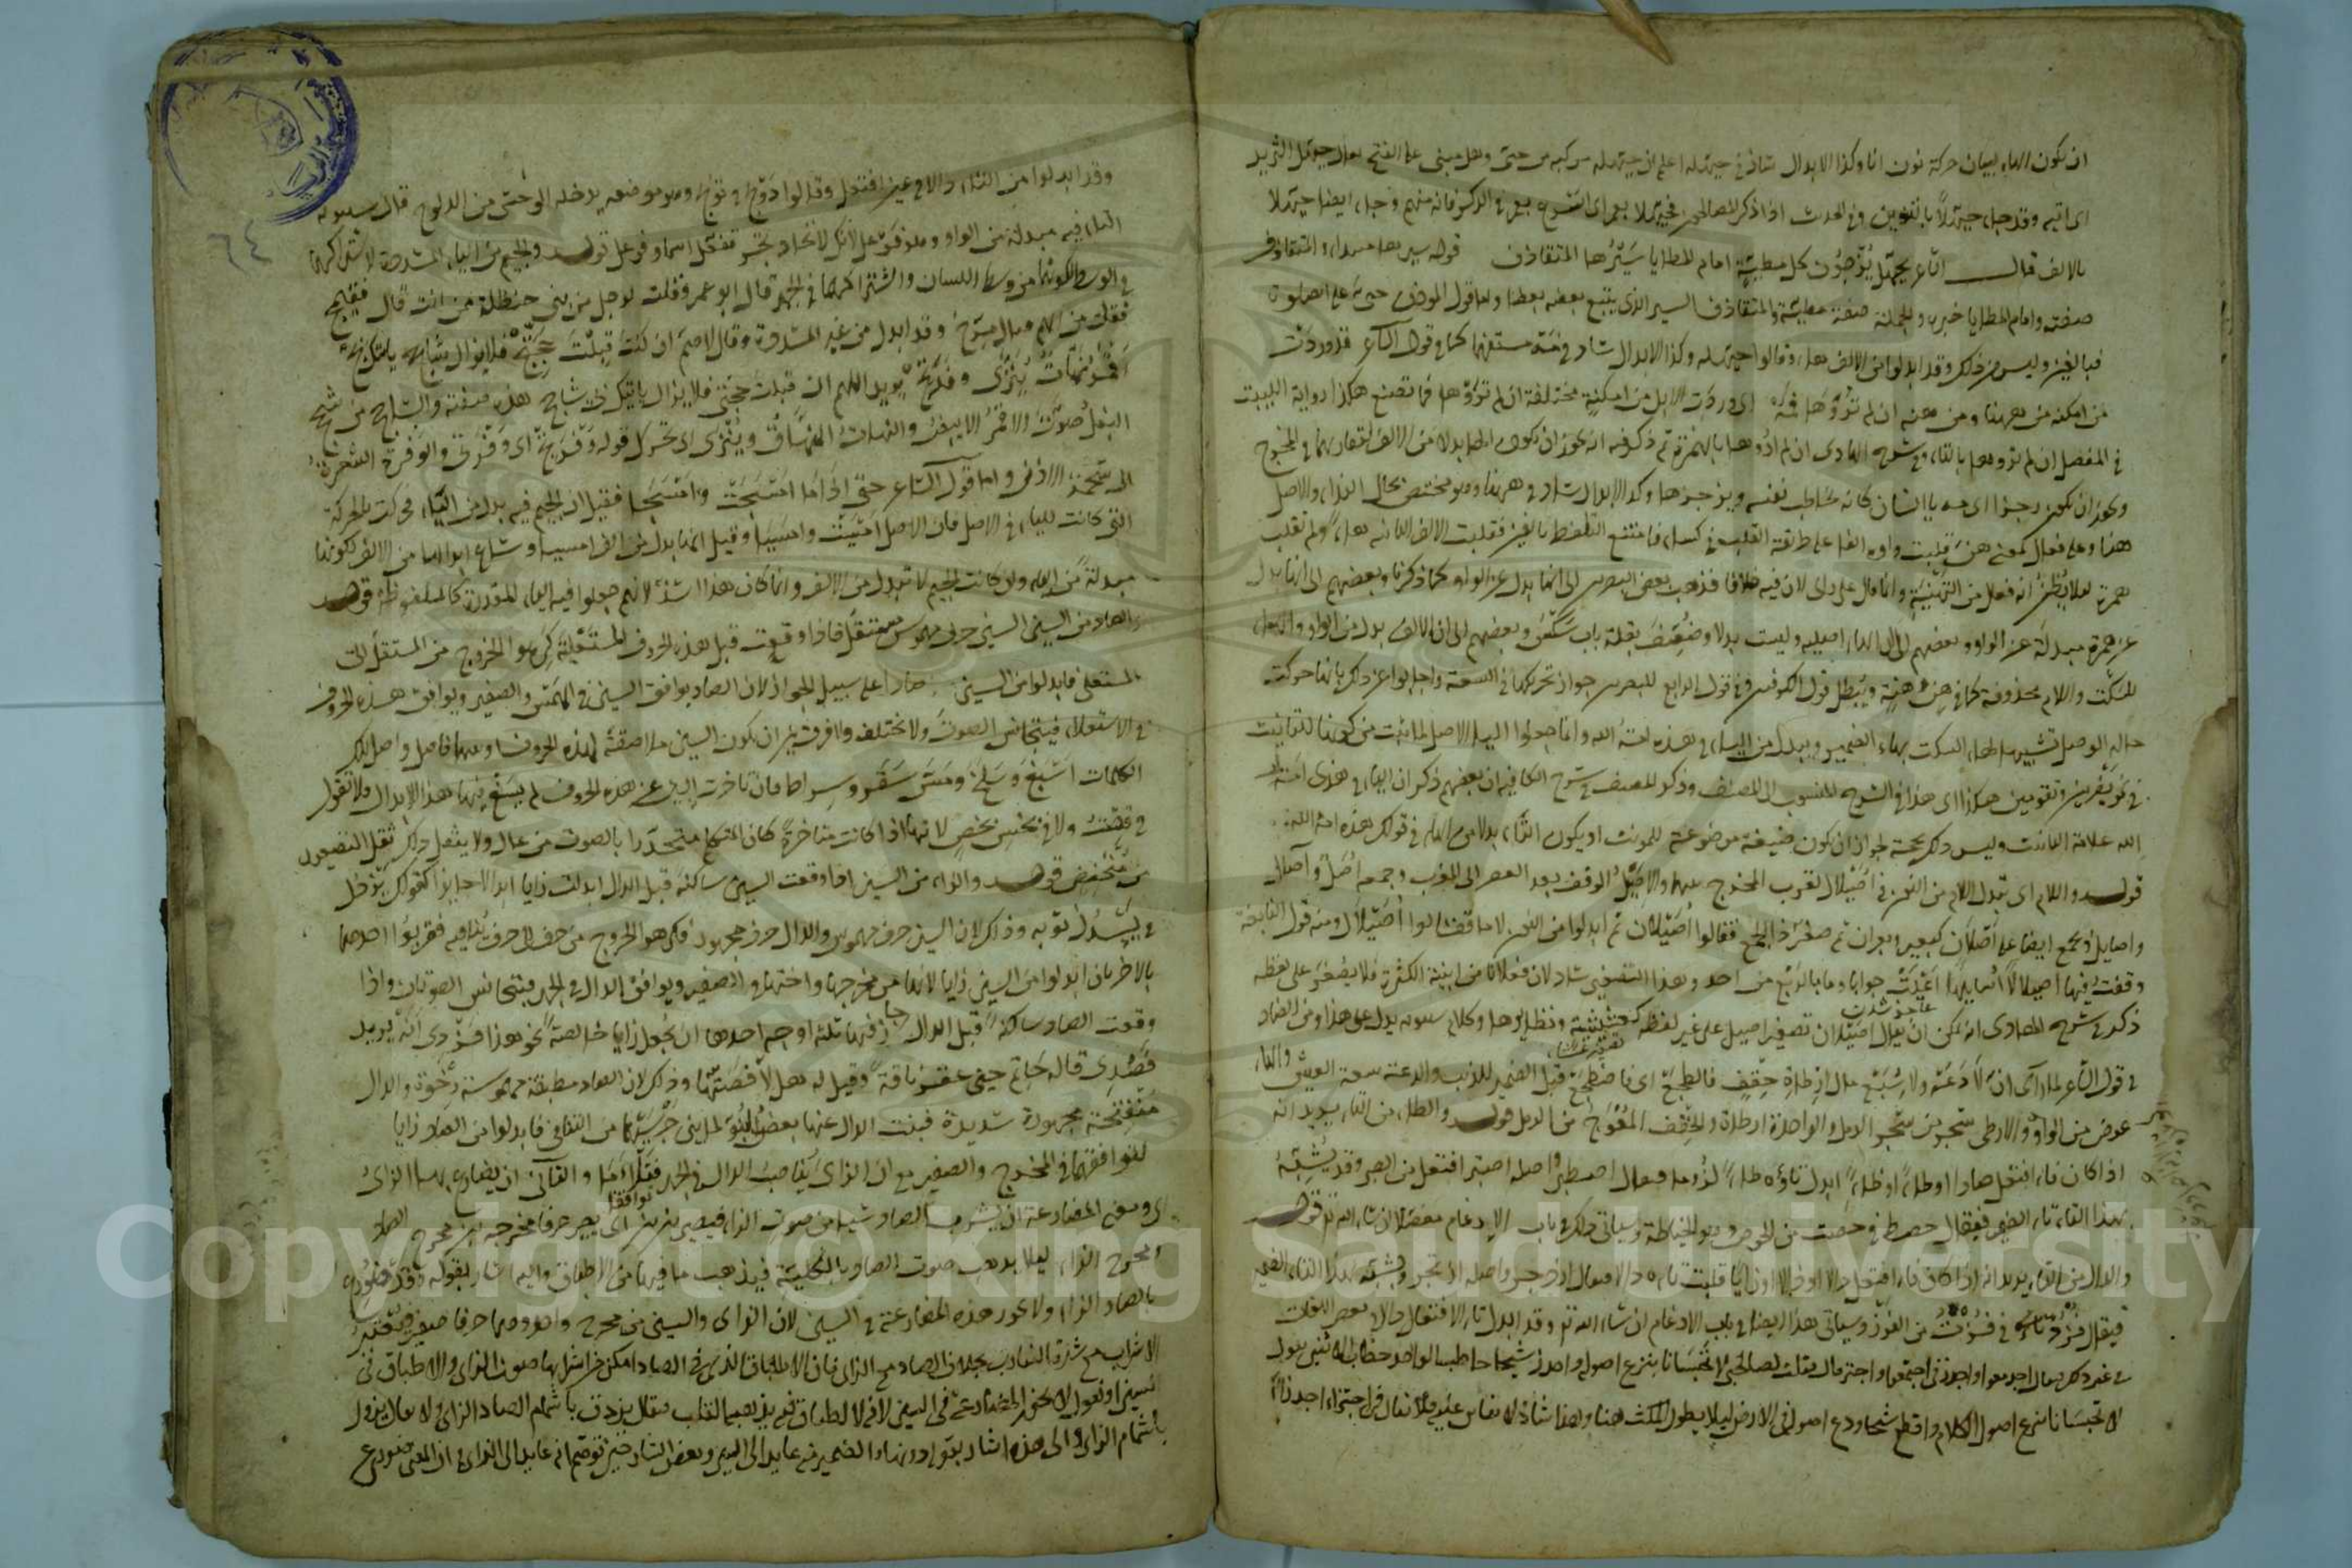 ان يكون الهاء لبيان حركة نون انا وكذا الابدال شاذ في حيهله اعلم ان حيهله مركبة من حي وهل مبني على الفتح يقال حيهل الثريد
اى ائتيه وقد جاء حيهلاً بالتنوين وفي الحديث اذا ذكر الصالحون فحيهلا بعمر اى اسرع بعمر في الذكر فانه منهم وجاء ايضا حيهلا
بالالف قال الشاعر بحيهلا يزجون كل مطية امام المطايا سيرها المتقاذف قوله سيرها مبتداء والمتقاذف
صفته وامام المطايا خبره والجملة صفة مطية والمتقاذف السير الذى يتبع بعضه بعضا واما قول المؤذن حي على الصلوة
فبالعين وليس من ذلك وقد ابدلوا من الالف هاء وقالوا حيهله وكذا الابدال شاذ في مه مستفهما كما في قول الشاعر قد وردت
من امكنه من ههنا ومن هنه ان لم تروها فمه اى وردت الابل من امكنة مختلفة ان لم تروها فما تصنع هكذا رواية البيت
في المفصل ان لم تروها بالتاء وفي شرح الهادى ان لم اروها بالهمزة ثم ذكر فيه انه يجوز ان تكون الهاء بدلا من الالف لتقاربهما في المخرج
ويجوز ان يكون زجرا اى مه يا انسان كانه يخاطب نفسه ويزجرها وكذا الابدال شاذ في هناه وهو مختص بحال النداء والاصل
همزة لئلا يظن انه فعل من التهنية وانما قال على راى لان فيه خلافا فذهب بعض البصريين الى انها بدل عن الواو كما ذكرنا وبعضهم الى انها بدل
عن همزة مبدلة عن الواو وبعضهم الى ان الهاء اصلية وليست بدلا وضعف بقلة باب سلس وبعضهم الى ان الالف بدل من الواو والهاء
للسكت واللام محذوفة كما في هن وهنة ويبطل قول الكوفيين وفي قول الرابع للبصريين جواز تحريكها في السعة واجابوا عن ذلك بانها حركت
حالة الوصل تشبيها لهاء السكت بهاء الضمير ويبدل من الياء في هذه امة الله وانما جعلوا الياء الاصل لما ثبت من كونها للتانيث
في نحو تضربين وتقومين هكذا في الشرح المنسوب الى المصنف وذكر المصنف في شرح الكافية ان بعضهم ذكر ان الياء في هذى امة
الله علامة التانيث وليس ذلك بحجة لجواز ان تكون صيغة موضوعة للمونث او يكون الياء بدلا من الهاء في قولك هذه امة الله
قوله واللام اى تبدل اللام من النون في اصيلال لقرب المخرج بينهما والاصيل الوقت بعد العصر الى المغرب وجمعه اصل وآصال
واصايل ويجمع ايضا على اصلان كبعير وبعران ثم صغروا الجمع فقالوا اصيلان ثم ابدلوا من النون لاما فقالوا اصيلال ومنه قول النابغة
وقفت فيها اصيلالا اسايلها اعيت جوابا وما بالربع من احد وهذا التصغير شاذ لان فعلانا من ابنية الكثرة فلا يصغر على لفظه
ذكر في شرح الهادى انه يمكن ان يقال اصيلان تصغير اصيل على غير لفظه كعشيشية ونظايرها وكلام سيبويه يدل على هذا ومن الضاد
في قول الشاعر لما راى ان لا دعه ولا شبع مال الى ارطاة حقف فالطجع اى فاضطجع قبل الضمير للذئب والدعة سعة العيش والهاء
عوض من الواو والارطى شجر من شجر الرمل والواحدة ارطاة والحقف المعوج من الرمل قوله والطاء من التاء يريد انه
اذا كان فاء افتعل صادا او طاء او ظاء ابدل تاؤه طاء لزوما فيقال اصطبر واصله اصتبر افتعل من الصبر وقد يشبه
بهذا التاء تاء الضمير فيقال حصط في حصت من الحوص وهو الخياطة وسياتى ذلك في باب الادغام مفصلا ان شاء الله تع قوله
والدال من التاء يريد انه اذا كان فاء افتعل دالا او ذالا او زايا قلبت تاءه دالا فيقال ازدجر واصله ازتجر ويشبه بهذا التاء تاء الضمير
فيقال فزد في فزت من الفوز وسياتى هذا ايضا في باب الادغام ان شاء الله تع وقد ابدل تاء الافتعال دالا في بعض اللغات
في غير ذلك فيقال اجدمعوا واجدز في اجتمعوا واجتز قال فقلت لصاحبي لا تحبسانا بنزع اصوله واجدز شيحا خاطب الواحد خطاب الاثنين يقول
لا تحبسانا بنزع اصول الكلاء واقطع شيحا ودع اصوله في الارض ليلا يطول المكث هنا وهذا شاذ لا يقاس عليه فلا يقال في اجتراء اجدراء
وقد ابدلوا من التاء دالا في غير افتعل وقالوا دولج في تولج وهو موضع يدخله الوحش من الولوج قال سيبويه
التاء فيه مبدلة من الواو وهو فوعل لانك لا تكاد تجد تفعل اسما وفوعل قوله والجيم من الياء المشددة لاشتراكهما
في الوسط لكونهما من وسط اللسان واشتراكهما في الجهر قال ابو عمرو قلت لرجل من بني حنظلة ممن انت قال فقيمج
فقلت من ايهم فقال مرج وقد ابدل من غير المشددة وقال لاهم ان كنت قبلت حجتج فلا يزال شاحج ياتيك بج
اقمر نهات ينزى وفرتج يريد اللهم ان قبلت حجتي فلا يزال ياتيك بي شاحج هذه صفته والشاحج من شحج
البغل صوت والاقمر الابيض والنهات النهاق وينزى اى يحرك قوله وفرتج اى وفرتى والوفرة الشعرة
الى شحمة الاذن واما قول الشاعر حتى اذا ما امسجت وامسجا فقيل ان الجيم فيه بدل من الياء محركت بالحركة
التى كانت للياء في الاصل فان الاصل امسيت وامسيا وقيل انما بدل من الف امسيا وساغ ابدالها من الالف لكونها
مبدلة من الياء وان كانت الجيم لا تبدل من الالف وانما كان هذا اشذ لانهم جعلوا فيه الياء المقدرة كالملفوظة قوله
والصاد من السين السين حرف مهموس مستفل فاذا وقعت قبل هذه الحروف المستعلية كرهوا الخروج من المستفل الى
المستعلى فابدلوا من السين صادا على سبيل الجواز لان الصاد يوافق السين في الهمس والصفير ويوافق هذه الحروف
في الاستعلاء فيتجانس الصوت ولا يختلف ولا فرق بين ان تكون السين ملاصقة لهذه الحروف او بينهما فاصل واصل تلك
الكلمات اسبغ وسلخ ومس سقر وسراط فان تاخرت السين عن هذه الحروف لم يسغ فيها هذا الابدال فلا تقول
في قست ولا في بخس بخص لانها اذا كانت متاخرة كان المتكلم منحدرا بالصوت من عال ولا يثقل ذلك ثقل التصعيد
من منخفض قوله والزاء من السين اذا وقعت السين ساكنة قبل الدال ابدلت زايا ابدالا جايزا كقولك يزدل
في يسدل ثوبه وذلك لان السين حرف مهموس والدال حرف مجهور فكرهوا الخروج من حرف الى حرف ينافيه فقربوا احدهما
بالاخر بان ابدلوا من السين زايا لانها من مخرجها واختها في الصفير ويوافق الدال في الجهر فيتجانس الصوتان واذا
وقعت الصاد ساكنة قبل الدال جاز فيها ثلثة اوجه احدها ان يجعل زايا خالصة نحو هذا فزدى انه يريد
فصدى قاله حاتم حين عقر ناقة وقيل له هلا فصدتها وذلك لان الصاد مطبقة مهموسة رخوة والدال
منفتحة مجهورة شديدة فنبت الدال عنها بعض النبو لما بين جرسيهما من التنافى فابدلوا من الصاد زايا
لتوافقهما في المخرج والصفير مع ان الزاى يناسب الدال في الجهر فتلاءما والثانى ان يضارع بها الزاى
ومعنى المضارعة ان يشرب الصاد شيئا من صوت الزاء فيصير بين بين اى يصير حرفا مخرجه بين مخرج الصاد
ومخرج الزاء ليلا يذهب صوت الصاد بالكلية فيذهب ما فيها من الاطباق واليه اشار بقوله وقد ضورع
بالصاد الزاء ولا يجوز هذه المضارعة في السين لان الزاى والسين من مخرج واحد وهما حرفا صفير
الاشراب مع شدة التقارب بخلاف الصاد مع الزاى فان الاطباق الذى في الصاد امكن من اشرابها صوت الزاى
باشمام الزاى والى هذه اشار بقوله دونها والضمير فيه عايد الى السين
٦٤
Copyright © King Saud University